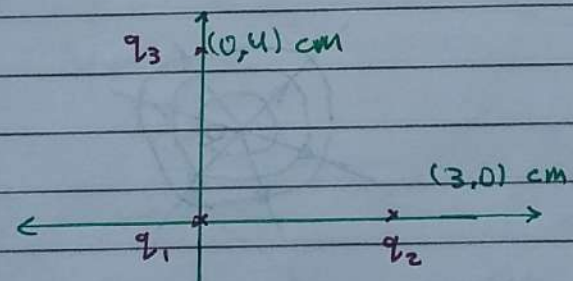 q3 (0,4) cm
(3,0) cm
q1 q2